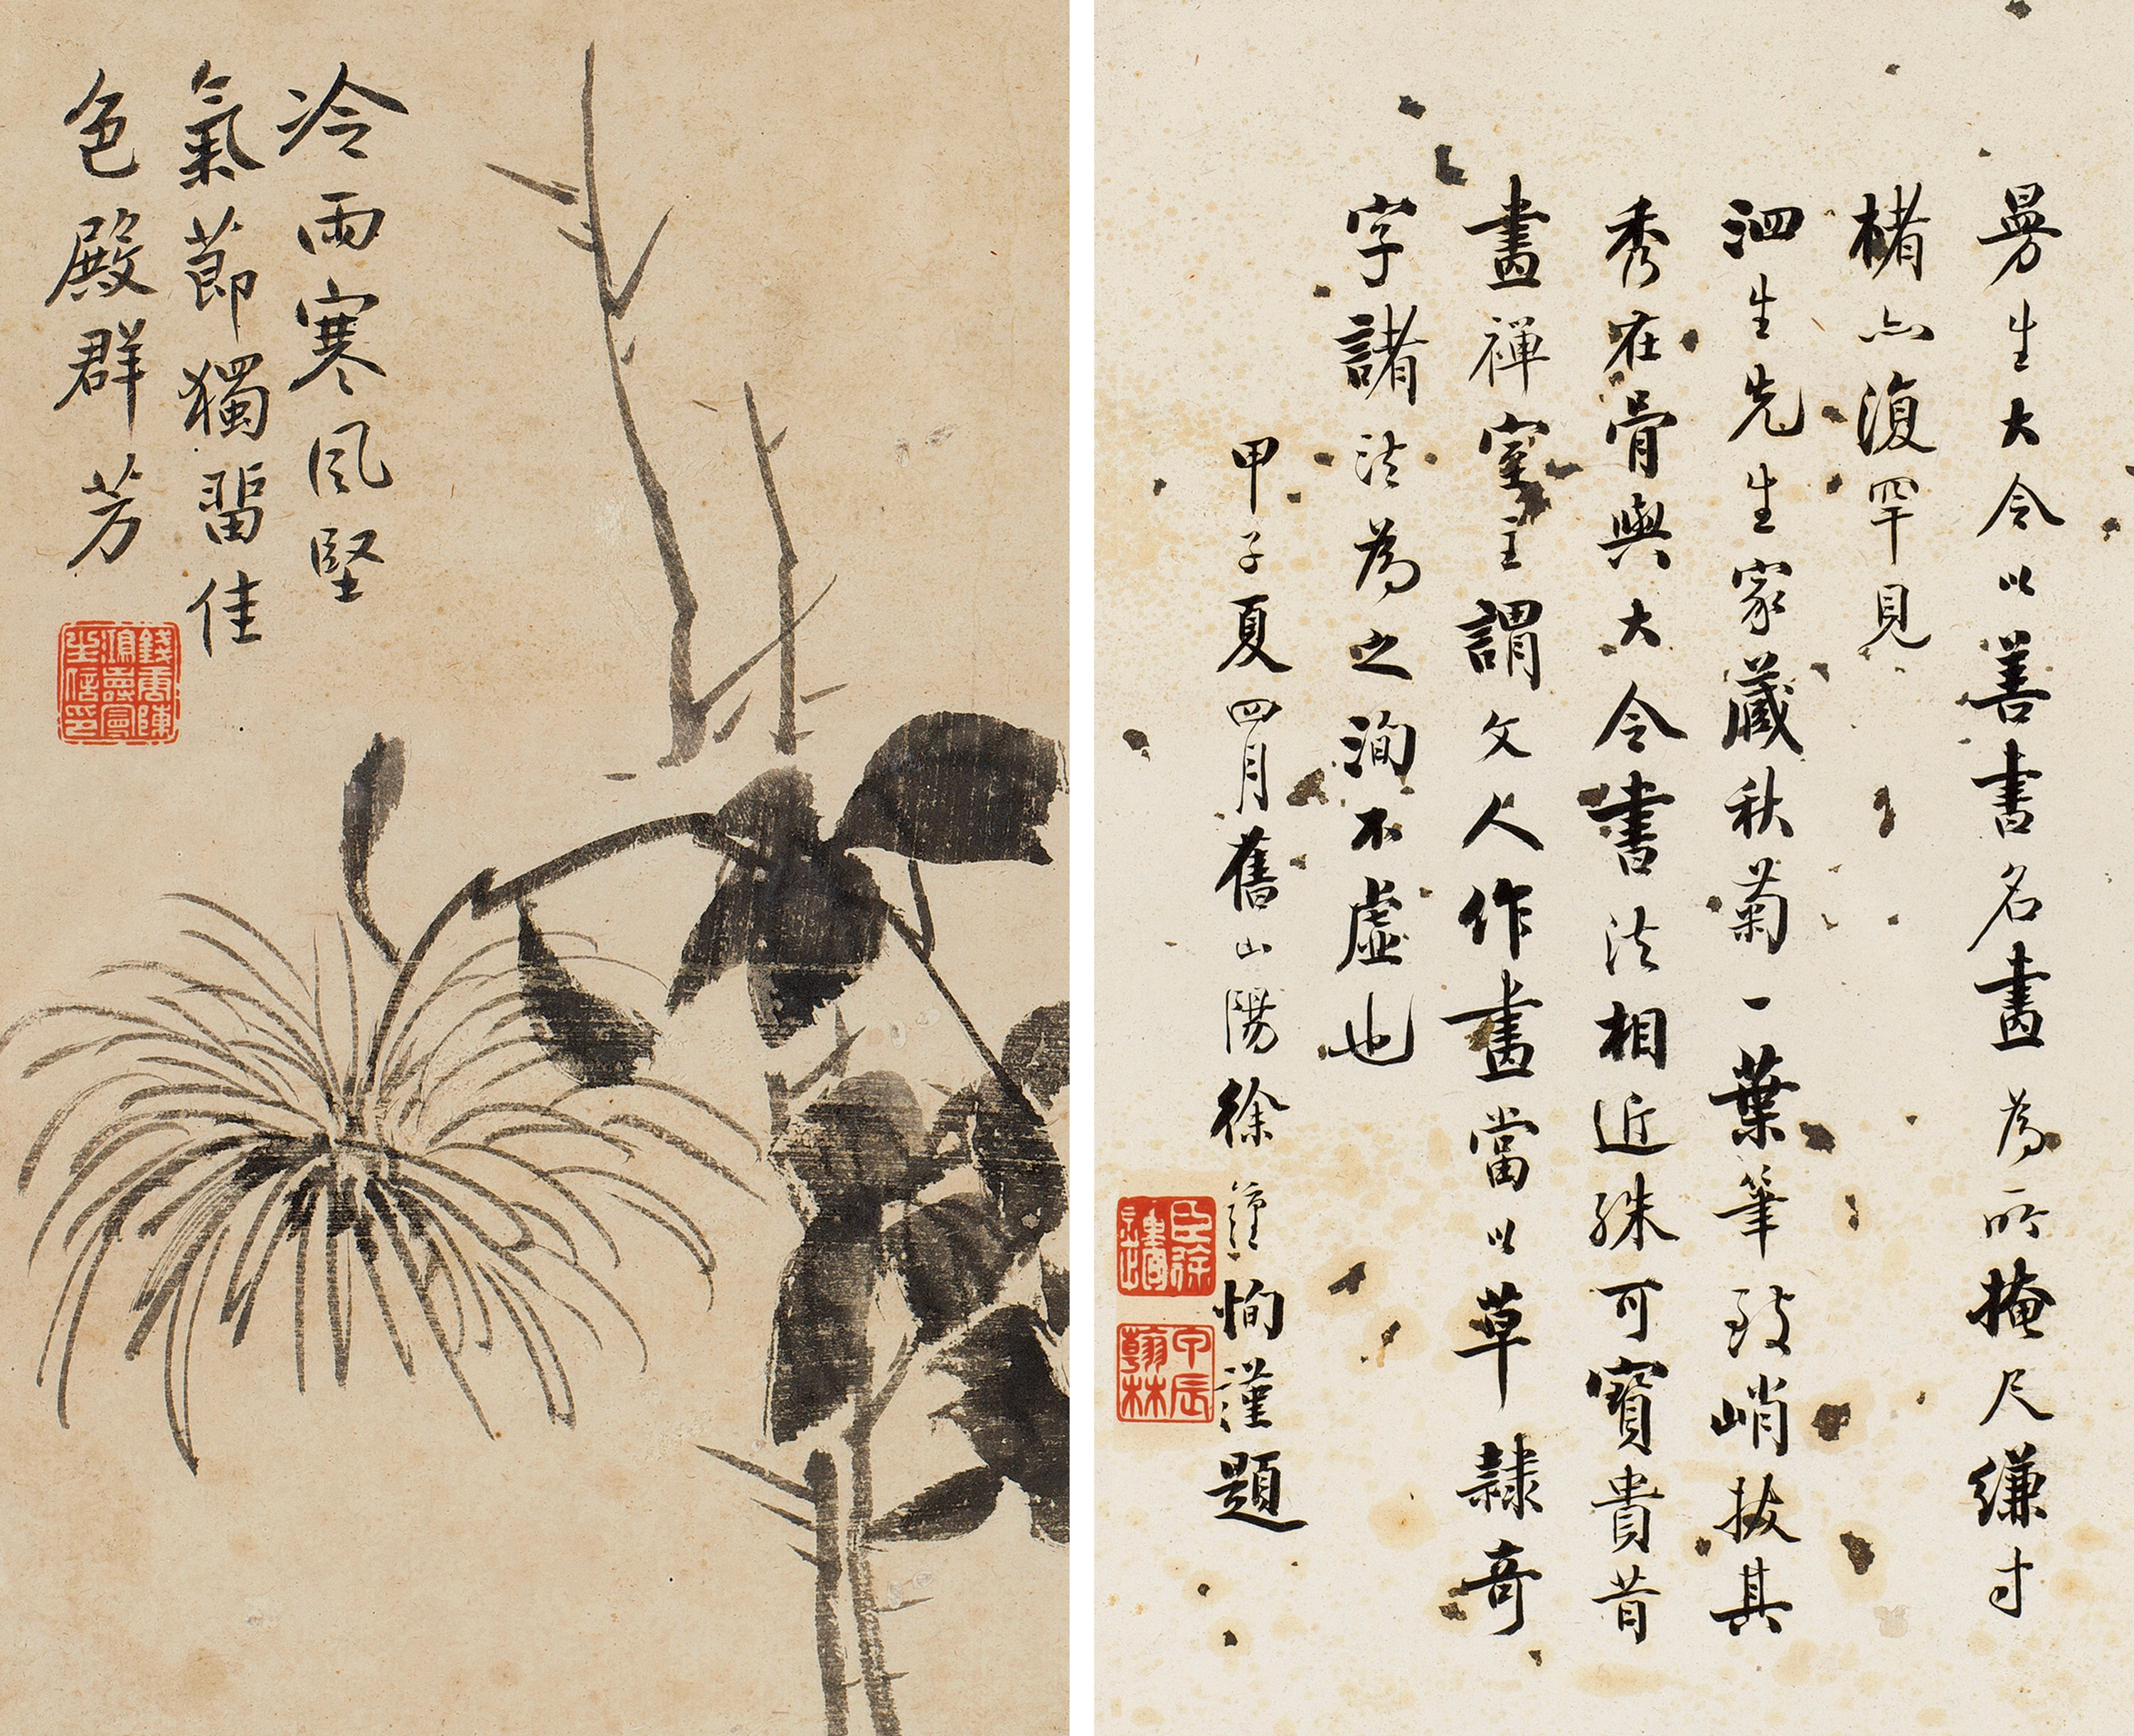 冷雨寒風堅
氣節獨畱佳
色殿群芳
錢唐陳
鴻壽曼
生信印
曼生大令以善書名畫為所掩尺縑寸
楮亦復罕見
泗生先生家藏秋菊一葉筆致峭拔其
秀在骨與大令書法相近殊可寶貴昔
畫禪室主謂文人作畫當以草隸奇
字諸法為之洵不虛也
甲子夏四月舊山陽徐鍾恂謹題
臣徐
鍾恂
甲辰
翰林